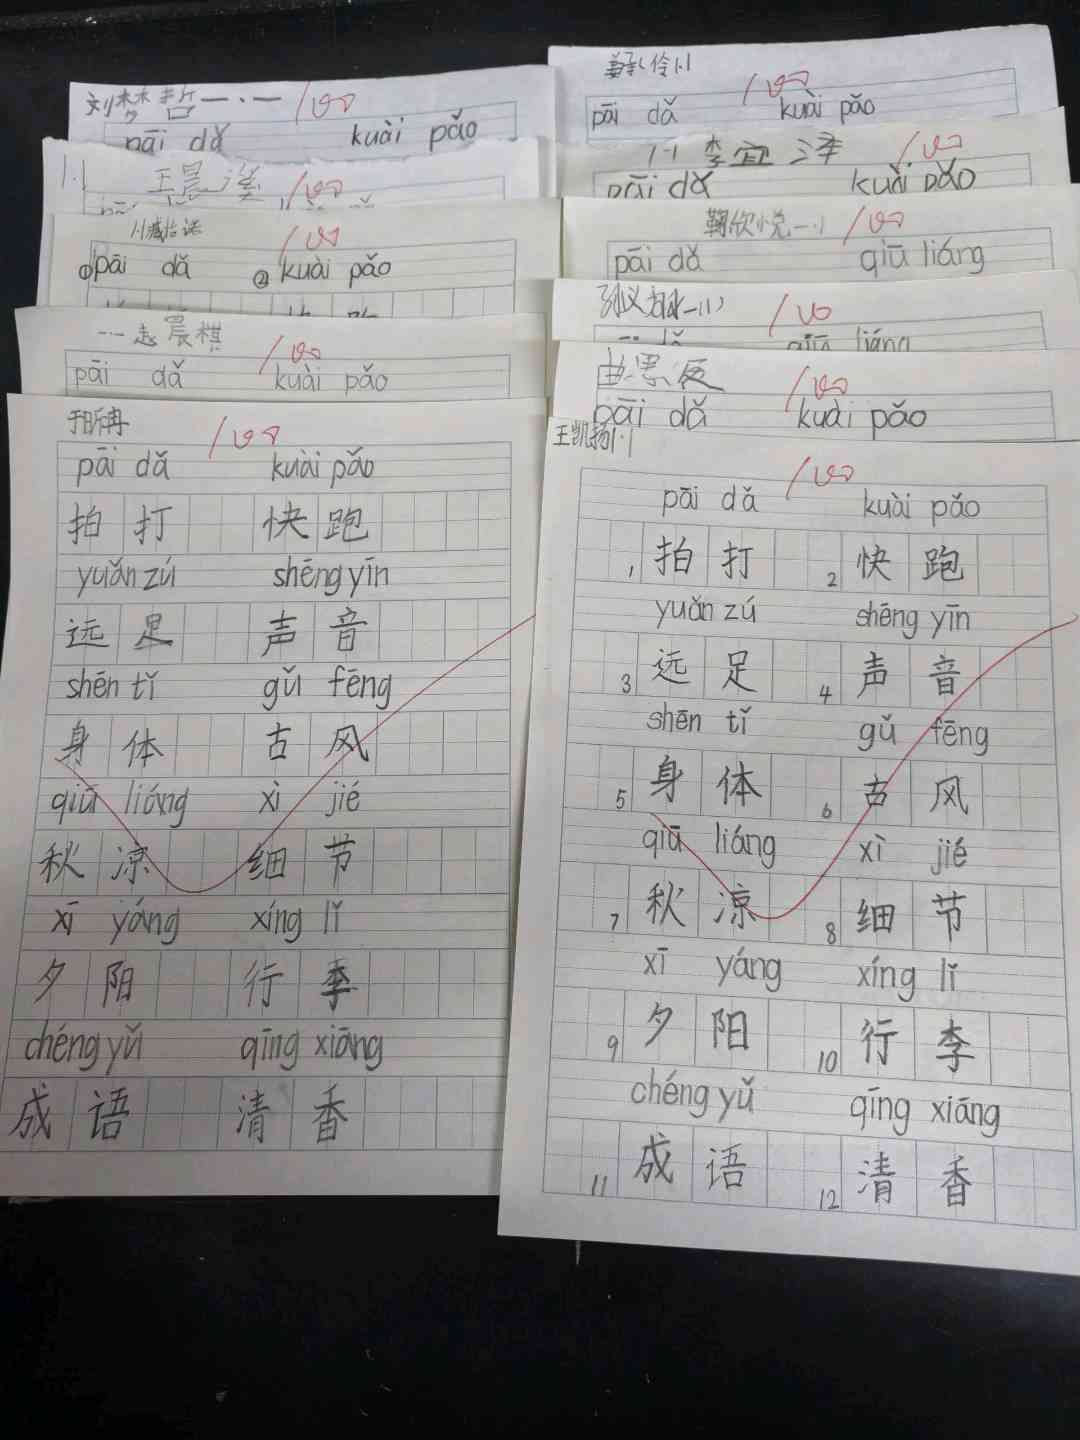 刘梦哲一.一 100
pāi dǎ kuài pǎo
1.1 王晨溢 100
100
①pāi dǎ ②kuài pǎo
一.一 孟晨棋 100
pāi dǎ kuài pǎo
100
pāi dǎ kuài pǎo
拍打 快跑
yuǎn zú shēng yīn
远足 声音
shēn tǐ gǔ fēng
身体 古风
qiū liáng xì jié
秋凉 细节
xī yáng xíng lǐ
夕阳 行李
chéng yǔ qīng xiāng
成语 清香
100
pāi dǎ kuài pǎo
1-1 李宜泽 100
pāi dǎ kuài pǎo
鞠欣悦一.1 100
pāi dǎ qiū liáng
100
qiū liáng
曲思涵 100
pāi dǎ kuài pǎo
王凯扬1.1 100
pāi dǎ kuài pǎo
1 拍打 2 快跑
yuǎn zú shēng yīn
3 远足 4 声音
shēn tǐ gǔ fēng
5 身体 6 古风
qiū liáng xì jié
7 秋凉 8 细节
xī yáng xíng lǐ
9 夕阳 10 行李
chéng yǔ qīng xiāng
11 成语 12 清香